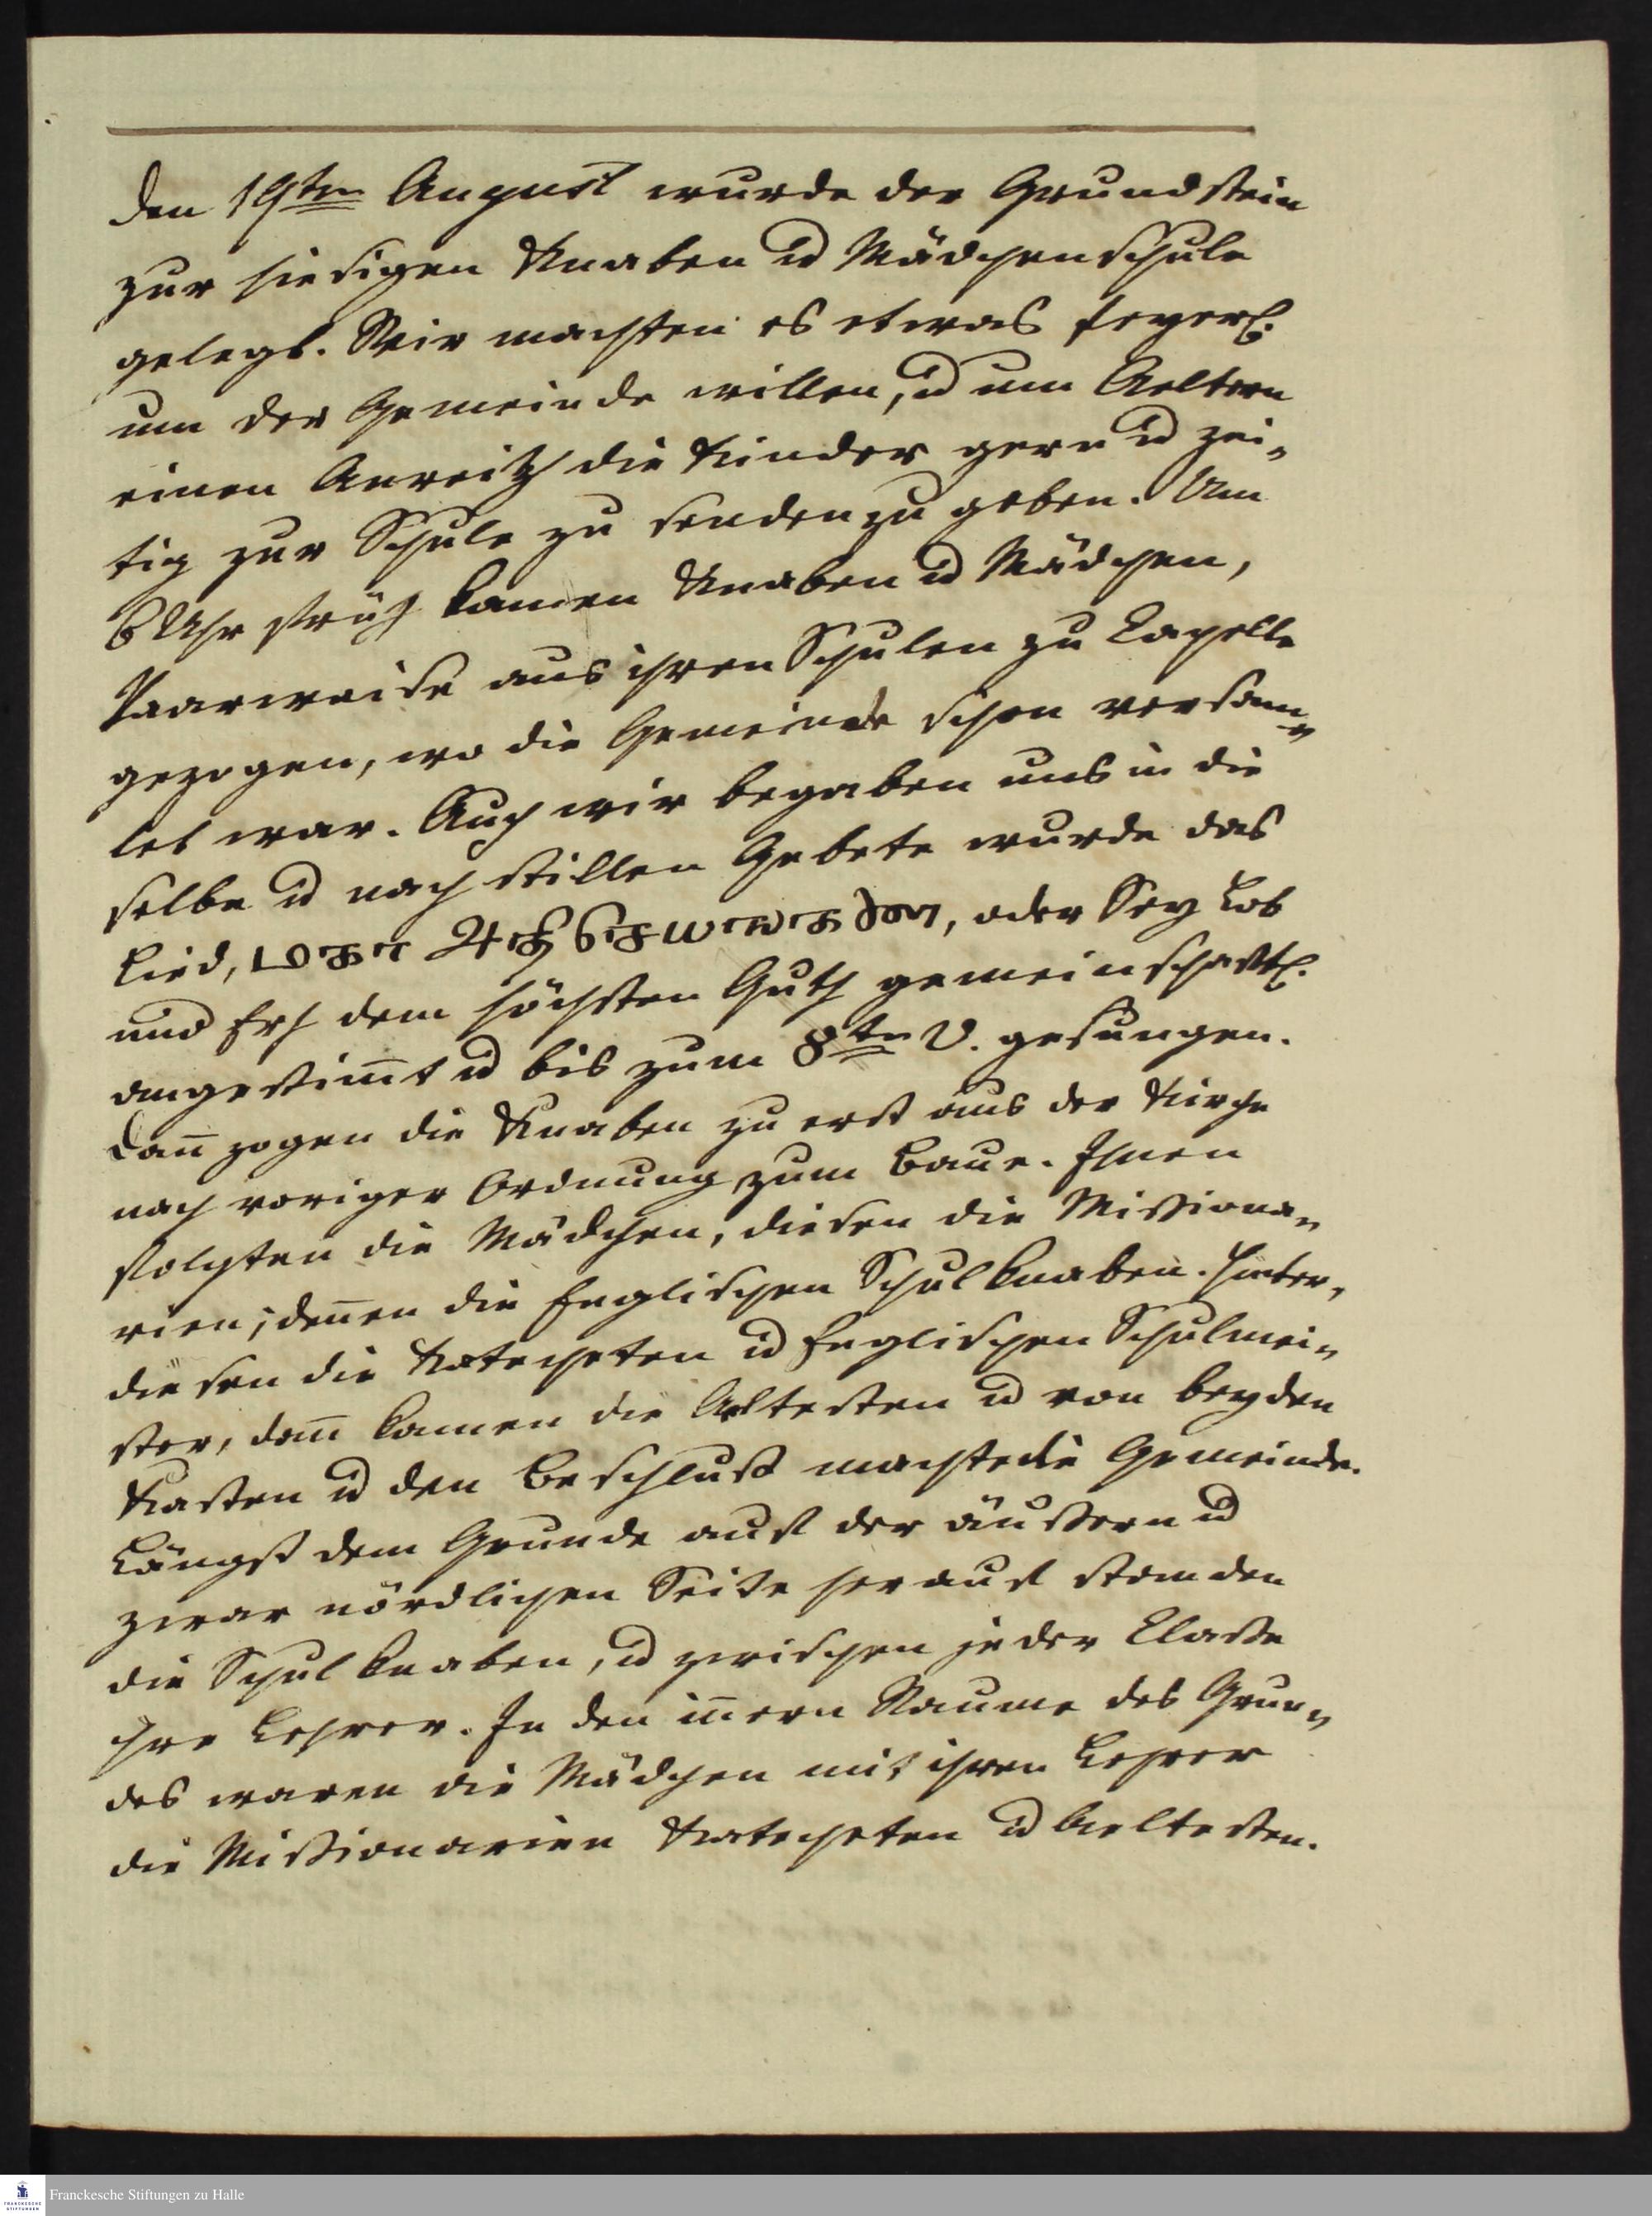 den 19ten August wurde der Grundstein
zur hiesigen Knaben u Mädchenschule
gelegt. Wir machten es etwas feyerl.
um der Gemeinde willen, u um Aeltern
einen Anreitz die Kinder gern u zei-
tig zur Schule zu senden zu geben. Um
6 Uhr früh kamen Knaben u Mädchen,
Paarweise aus ihren Schulen zu Capelle
gezogen, wo die Gemeinde schon versam-
let war. Auch wir begaben uns in die
selbe u nach stillen Gebete wurde das
Lied, oder Sey Lob
und Erh dem höchsten Guth gemeinschaftl.
angestimt u bis zum 8ten V. gesungen.
Dan zogen die Knaben zu erst aus der Kirche
nach voriger Ordnung zum Baue. Ihnen
folgten die Mädchen, diesen die Missiona-
rien; denen die Englischen Schulknaben. Hinter-
diesen die Katecheten u Englischen Schulmei-
ster, dan kamen die Aeltesten u von beyden
Kasten u den Beschluß machte die Gemeinde.
Längst dem Grunde auf der äußern u
zwar nördlichen Seite herauf standen
die Schulknaben, u zwischen jeder Classe
ihre Lehrer. In den inern Raume des Grun-
des waren die Mädchen mit ihren Lehrer
die Missionarien Katecheten u Aeltesten.
Franckesche Stiftungen zu Halle